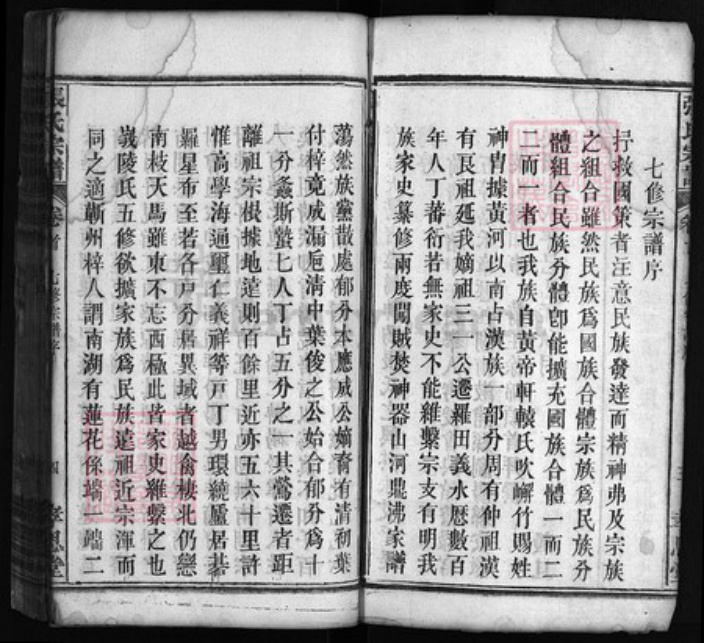 七修宗譜序
救國策者注意民族發達而精神弗及宗族
之組合雖然民族爲國族合體宗族爲民族分
體組合民族分體卽能擴充國族合體一而二
二而一者也我族自黃帝軒轅氏吹嶰竹賜姓
神胄據黃河以南占漢族一部分周有仲祖漢
有良祖延我嫡祖三一公遷羅田義水歷數百
年人丁蕃衍若無家史不能維繫宗支有明我
族家史纂修兩度闖賊焚神器山河鼎沸家譜
蕩然族黨散處郁分本應威公嫡裔有清初葉
付梓竟威漏巵清中葉俊之公始合郁分爲十
一分螽斯蟄蟄七人丁占五分之一其鶯遷者距
離祖宗根據地遠則百餘里近亦五六十里許
惟高學海通璽仁義祥等戸丁男環繞廬居碁
羅星布至若各戸分居異域者越禽棲北仍戀
南枝天馬雖東不忘西極此皆家史維繫之也
嶷陵氏五修欲擴家族爲民族遠祖近宗渾而
同之適蘄州梓人謂南湖有蓮花係端一端二
張氏宗譜
卷首
七修宗譜序
四
孝思堂